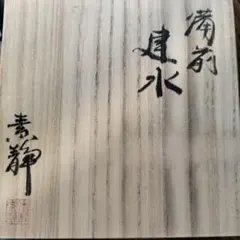 備前
建水
素静